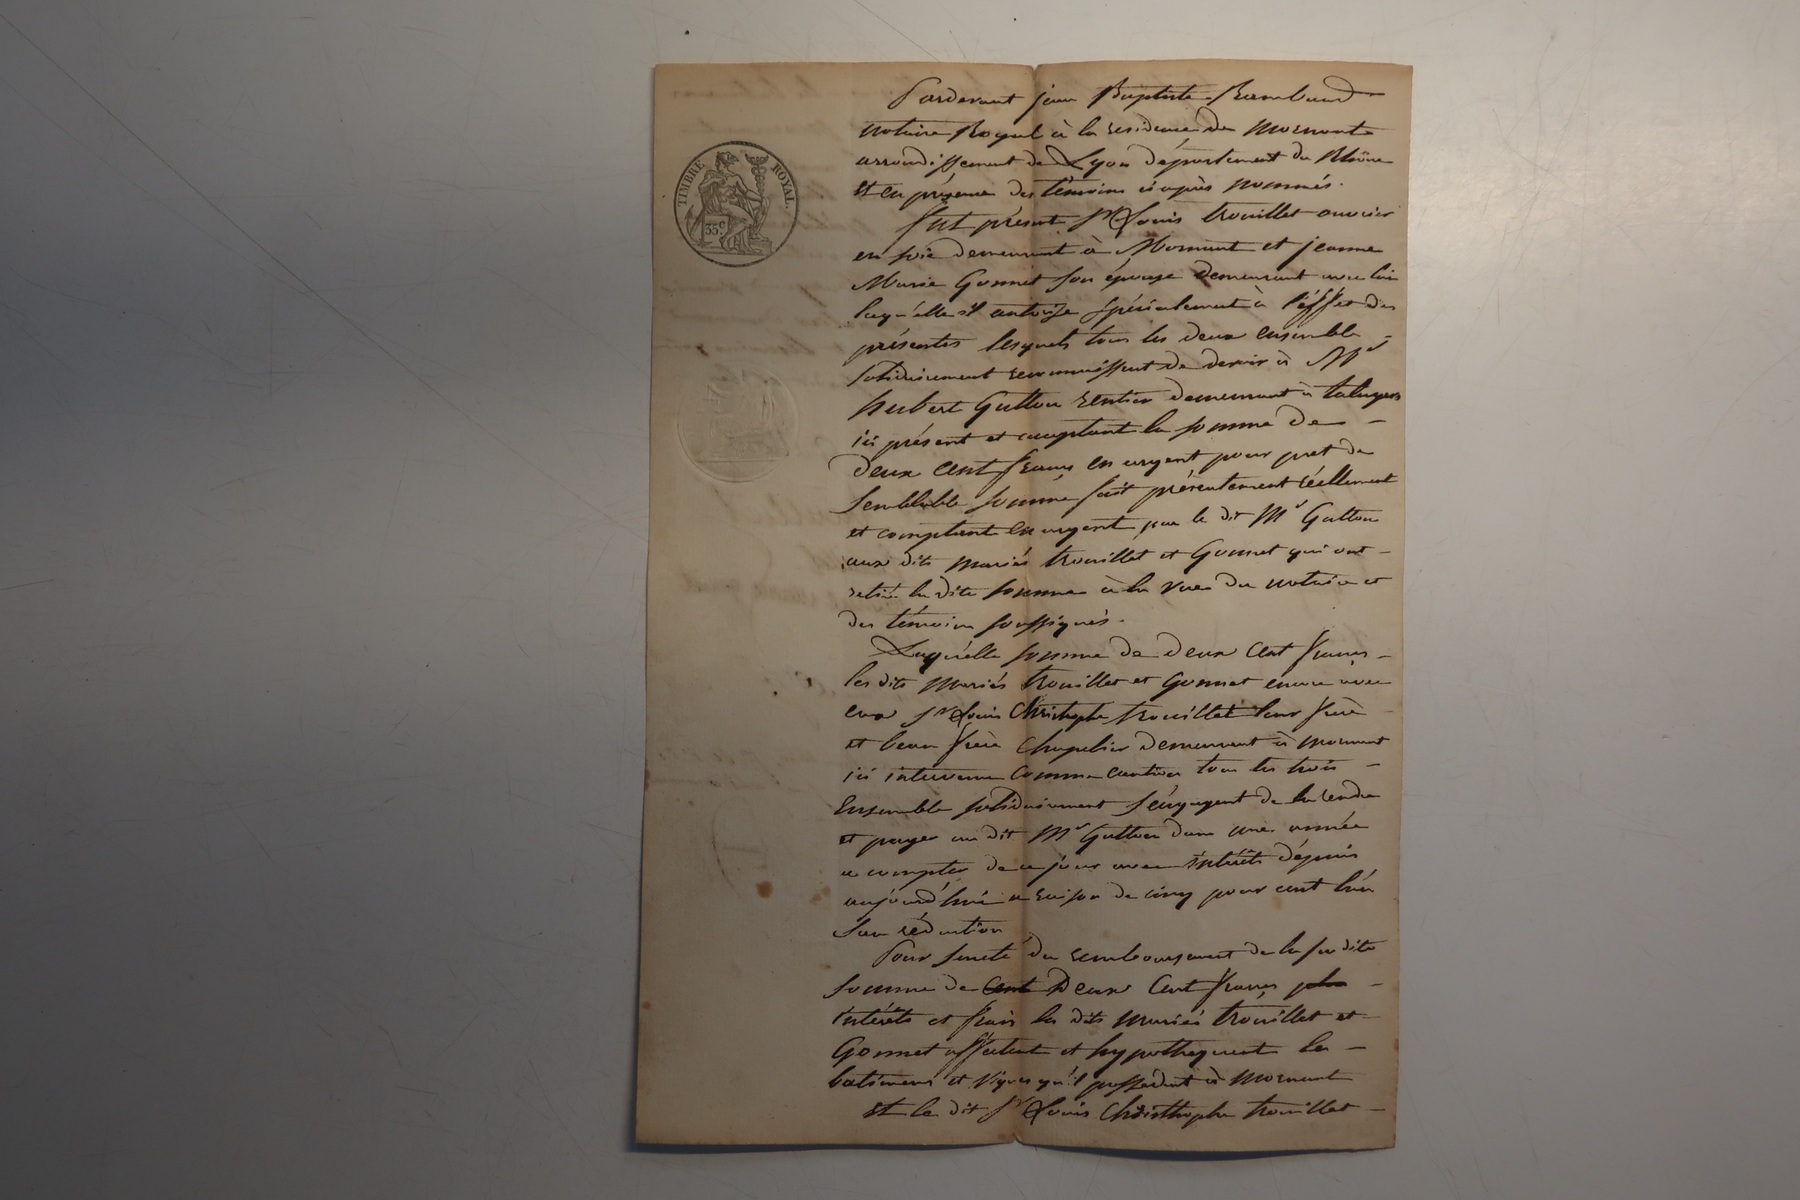 TIMBRE ROYAL.
35c
Pardevant jean Baptiste Rambaud
notaire Royal à la residence de Mornant
arrondissement de Lyon département du Rhône
et en présence des témoins ci après nommés.
fut présent Sr Louis trouillet ouvrier
en soie demeurant à Mornant et jeanne
Marie Gonnet son épouse demeurant avec lui
laquelle il autorise spécialement à l'éffet des
présentes lesquels tous les deux ensemble
solidairement reconnaissent de devoir à Mr
hubert Gutton rentier demeurant à taluyers
ici présent et acceptant la somme de
deux cent francs en argent pour pret de
semblable somme fait présentement réellement
et comptant en argent par le dit Mr Gutton
aux dits mariés trouillet et Gonnet qui ont
retiré la dite somme à la vue du notaire et
des témoins soussignés.
Laquelle somme de deux cent francs
les dits mariés trouillet et Gonnet et avec
eux Sr Louis Christophe trouillet leur frère
et beau frère Chapelier demeurant à mornant
ici intervenu comme caution tous les trois
Ensemble solidairement s'engagent de la rendre
et payer au dit Mr Gutton dans une année
a compter de ce jour avec intérêts dépuis
aujourd'hui a raison de cinq pour cent l'an
sans réduction
Pour sureté du remboursement de la su dite
somme de cent deux cent francs plus
intérêts et frais les dits mariés trouillet et
Gonnet affectent et hypothequent les
batimens et vignes qu'il possedent à Mornant
et le dit Sr Louis Christophe trouillet